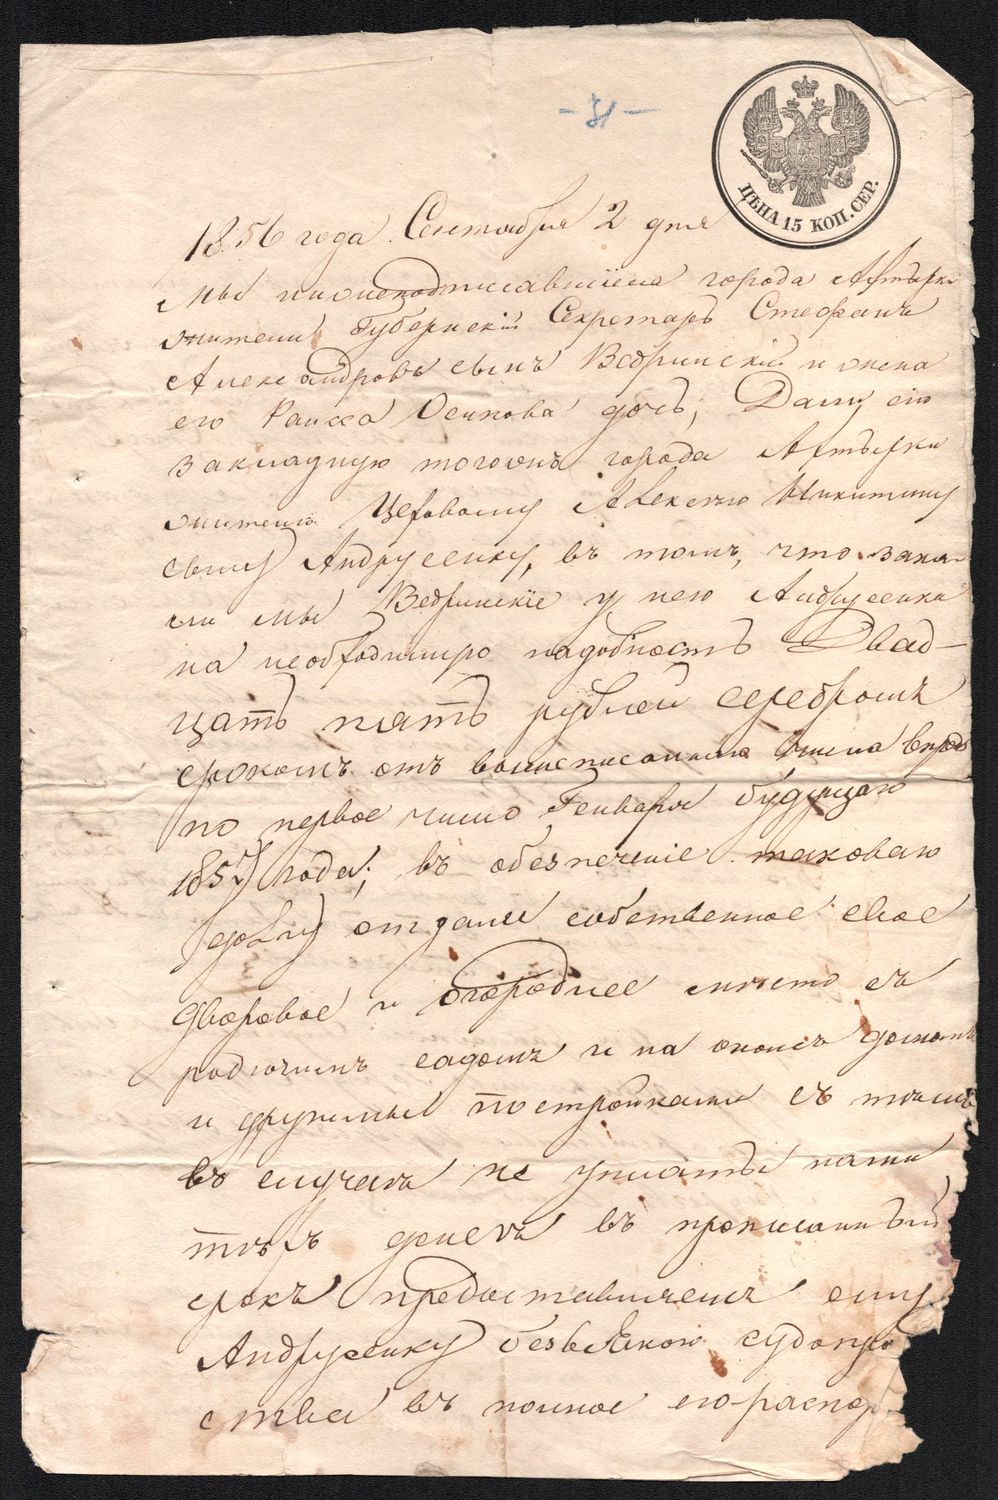 - 31 -
ЦѢНА 15 КОП. СЕР.
1856 года Сентября 2 дня
Мы нижеподписавшіеся города Ахтырки
жители Губернскій Секретаръ Стефанъ
Александровъ сынъ Ведринскій и жена
его Раиса Осипова дочь, Дали сію
закладную тогожъ города Ахтырки
жителю Цеховому Алексѣю Никитину
сыну Андрусенку, въ томъ, что заня-
ли мы Ведринскіе у него Андрусенка
на необходимую надобность Двад-
цать пять рублей серебромъ
срокомъ отъ вышеписанного числа впредь
по первое число Генваря будущаго
1857 года; въ обезпеченіе таковаго
долгу отдали собственное свое
дворовое и огороднее мѣсто съ
родючимъ садомъ и на ономъ домомъ
и другими постройками съ тѣмъ
въ случаѣ не уплаты нами
тѣхъ денегъ въ прописанный
срокъ предоставляемъ ему
Андрусенку безъ всякого судопро
ства въ полное его распор